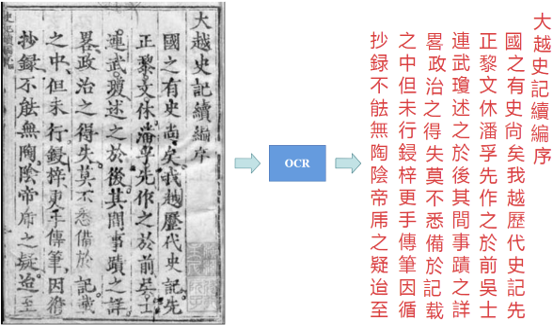 大越史記續編序
國之有史尚矣我越歷代史記先
正黎文休潘孚先作之於前吳士
連武瓊述之於後其間事蹟之詳
畧政治之得失莫不悉備於記載
之中但未行鋟梓更手傳筆因循
抄録不䏻無陶陰帝乕之疑迨至
OCR
大越史記續編序
國之有史尚矣我越歷代史記先
正黎文休潘孚先作之於前吳士
連武瓊述之於後其間事蹟之詳
畧政治之得失莫不悉備於記載
之中但未行鋟梓更手傳筆因循
抄録不䏻無陶陰帝乕之疑迨至